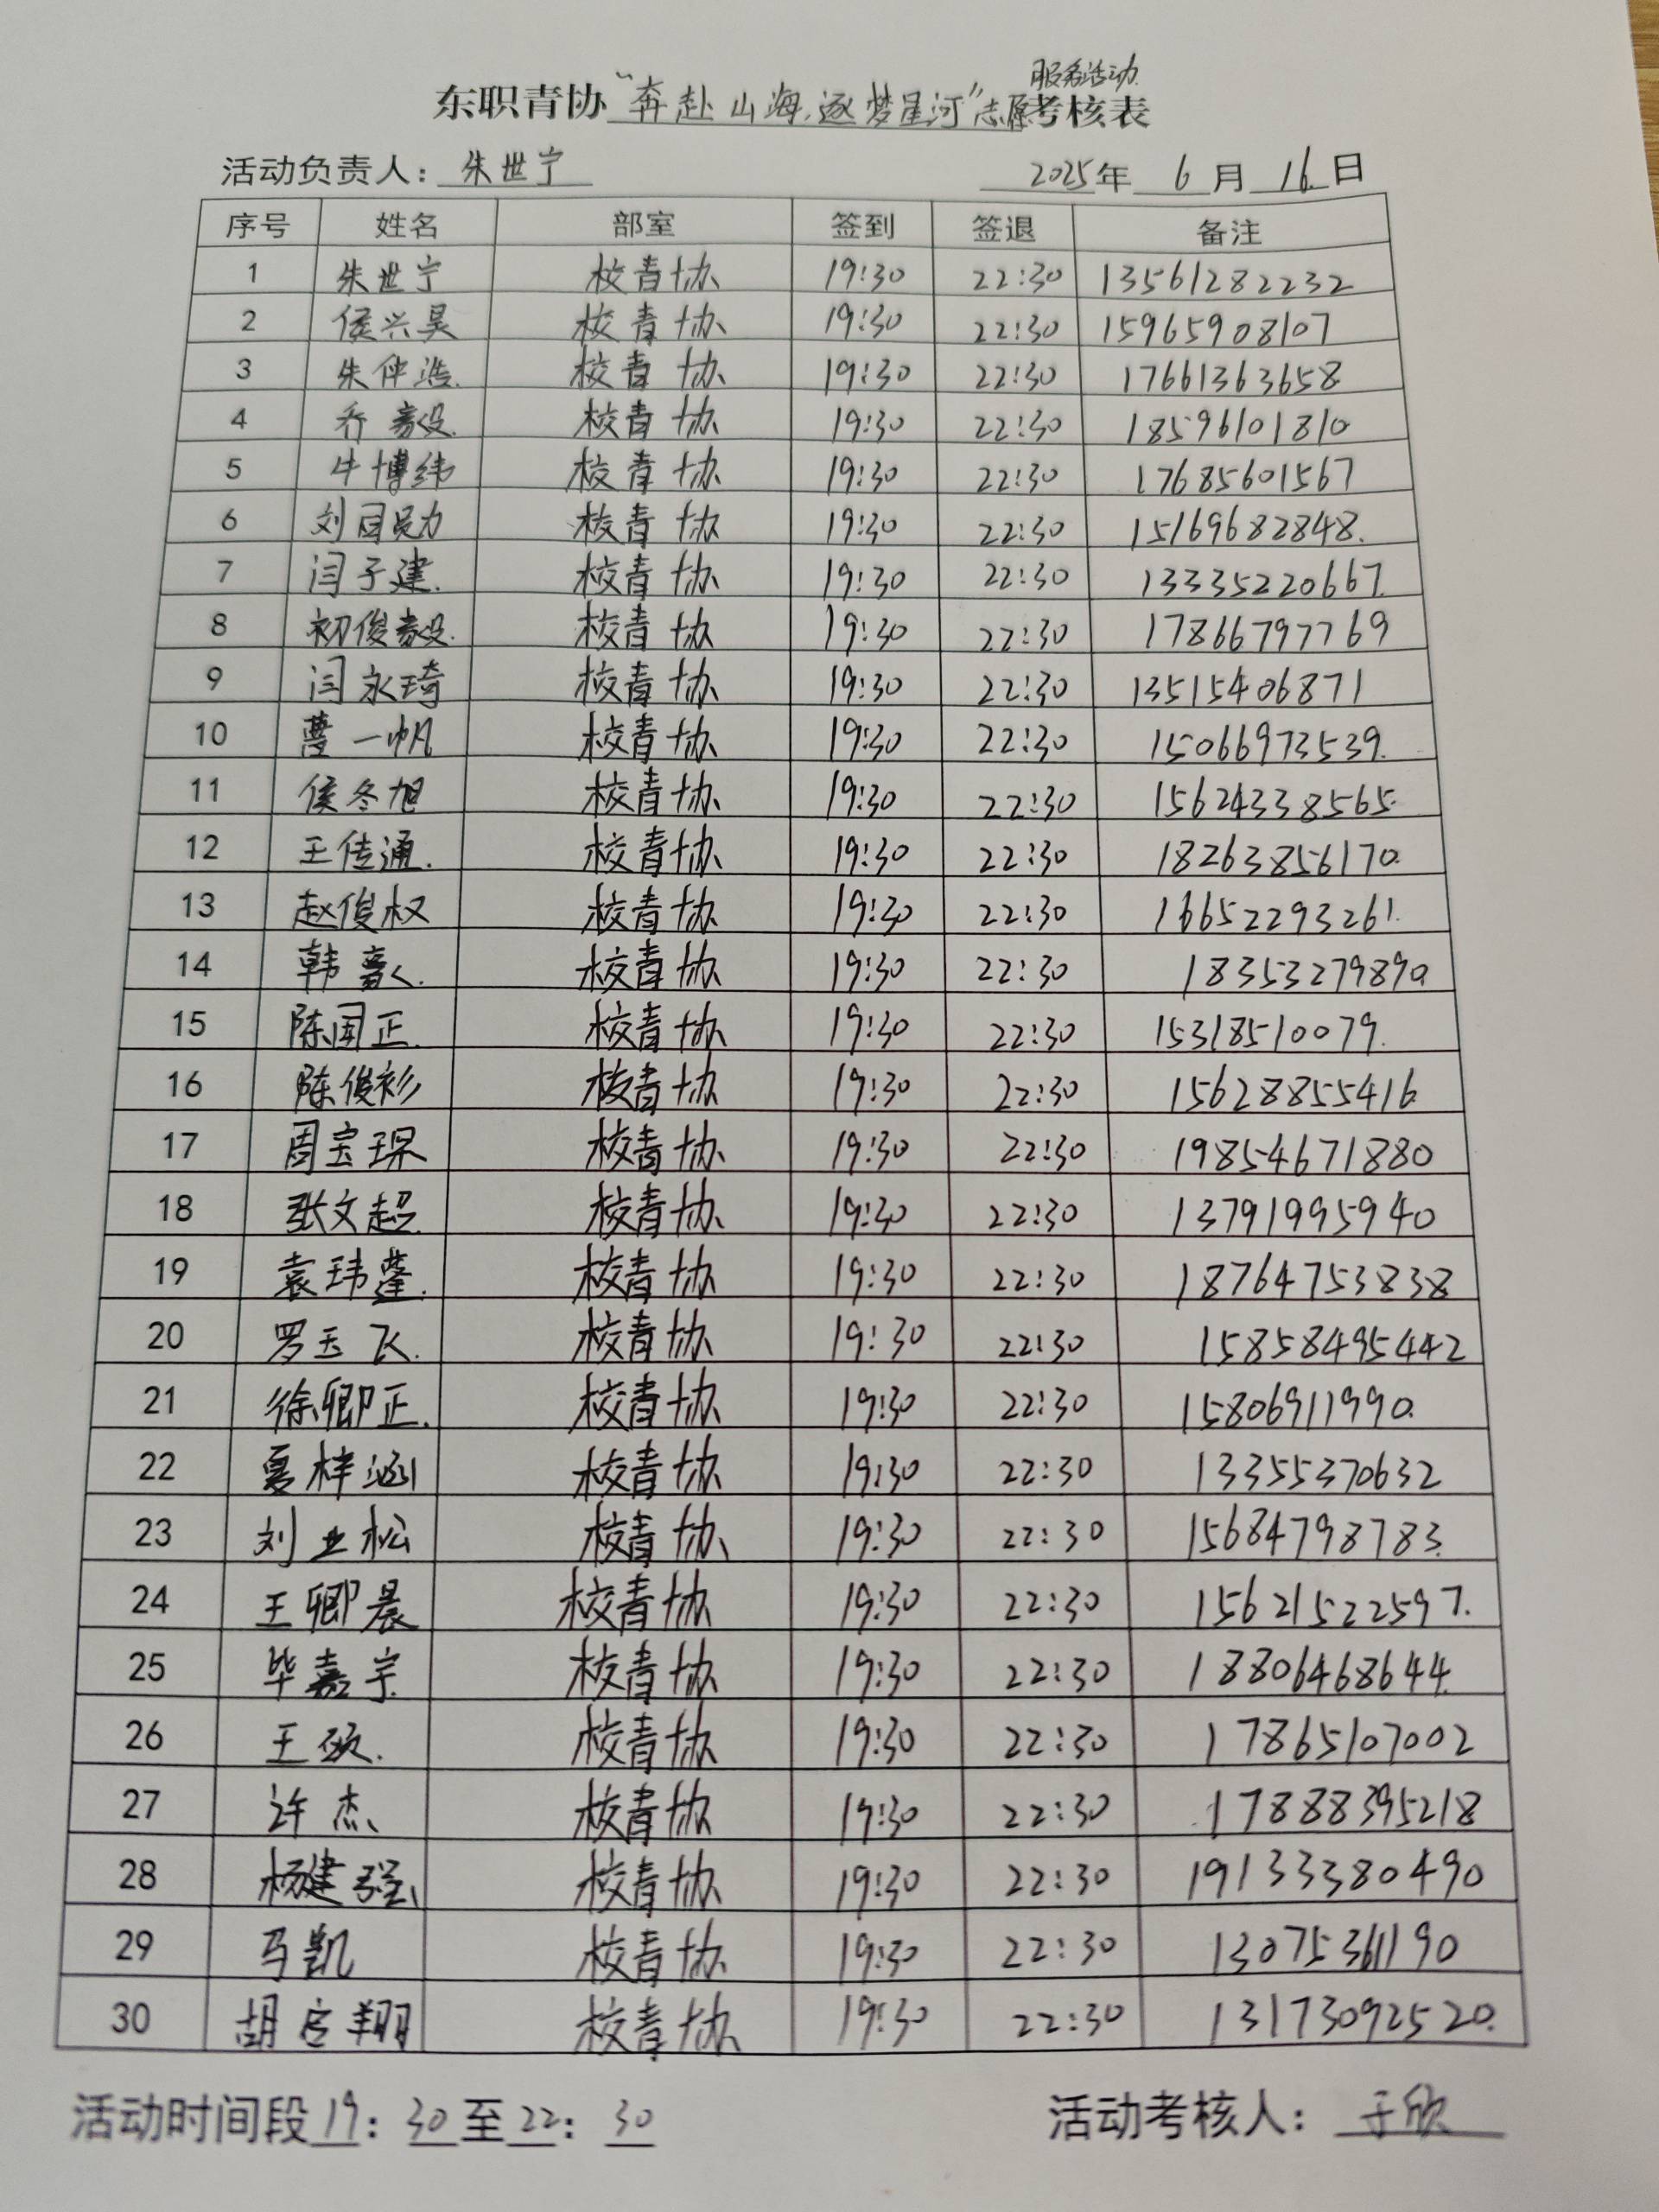 服务活动
东职青协“奔赴山海,逐梦星河”志愿考核表
活动负责人: 朱世宁 2025年 6 月 16 日
序号 姓名 部室 签到 签退 备注
1 朱世宁 校青协 19:30 22:30 13561282232
2 侯兴昊 校青协 19:30 22:30 15965908107
3 朱伴浩 校青协 19:30 22:30 17661363658
4 乔毅 校青协 19:30 22:30 18596101810
5 牛博纬 校青协 19:30 22:30 17685601567
6 刘国勋 校青协 19:30 22:30 15169682848
7 闫子建 校青协 19:30 22:30 13335220667
8 初俊毅 校青协 19:30 22:30 17866797769
9 闫永琦 校青协 19:30 22:30 13515406871
10 曹一帆 校青协 19:30 22:30 15066973539
11 侯冬旭 校青协 19:30 22:30 15624338565
12 王传通 校青协 19:30 22:30 18263856170
13 赵俊权 校青协 19:30 22:30 16652293261
14 韩 校青协 19:30 22:30 18353279890
15 陈国正 校青协 19:30 22:30 15318510079
16 陈俊衫 校青协 19:30 22:30 15628855416
17 周宝琛 校青协 19:30 22:30 19854671880
18 张文超 校青协 19:30 22:30 13791995940
19 袁玮蓬 校青协 19:30 22:30 18764753838
20 罗玉飞 校青协 19:30 22:30 15858495442
21 徐卿正 校青协 19:30 22:30 15806911990
22 夏梓涵 校青协 19:30 22:30 13355370632
23 刘业松 校青协 19:30 22:30 15684798783
24 王卿晨 校青协 19:30 22:30 15621522597
25 毕嘉宇 校青协 19:30 22:30 18806468644
26 王硕 校青协 19:30 22:30 17865107002
27 许杰 校青协 19:30 22:30 17888395218
28 杨建强 校青协 19:30 22:30 19133380490
29 马凯 校青协 19:30 22:30 13075361190
30 胡启翔 校青协 19:30 22:30 13173092520
活动时间段19: 30至22: 30 活动考核人: 于欣